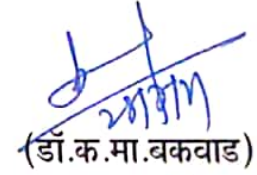 (डॉ.क.मा.बकवाड)